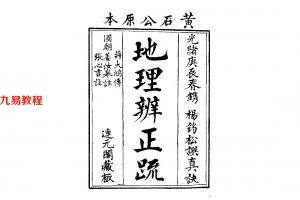 黃石公原本
光緒庚辰春鐫 楊筠松譔真訣
地理辨正疏
蔣大鴻傳
國朝姜汝皋註
張心言註
連元閣藏板
九易教程